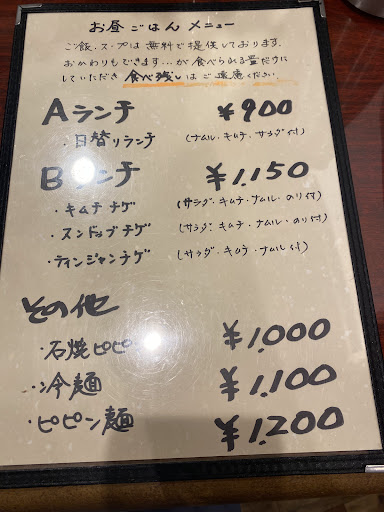 お昼ごはん メニュー
ご飯、スープは無料で提供しております。
おかわりもできます…が 食べられる量だけに
していただき 食べ残しはご遠慮ください。
Aランチ ¥900
・日替りランチ (ナムル・キムチ・サラダ付)
Bランチ ¥1,150
・キムチチゲ (サラダ・キムチ・ナムル・のり付)
・スンドゥブチゲ (サラダ・キムチ・ナムル・のり付)
・テインジャンチゲ (サラダ・キムチ・ナムル付)
その他
・石焼ビビ ¥1,000
・冷麺 ¥1,100
・ビビン麺 ¥1,200